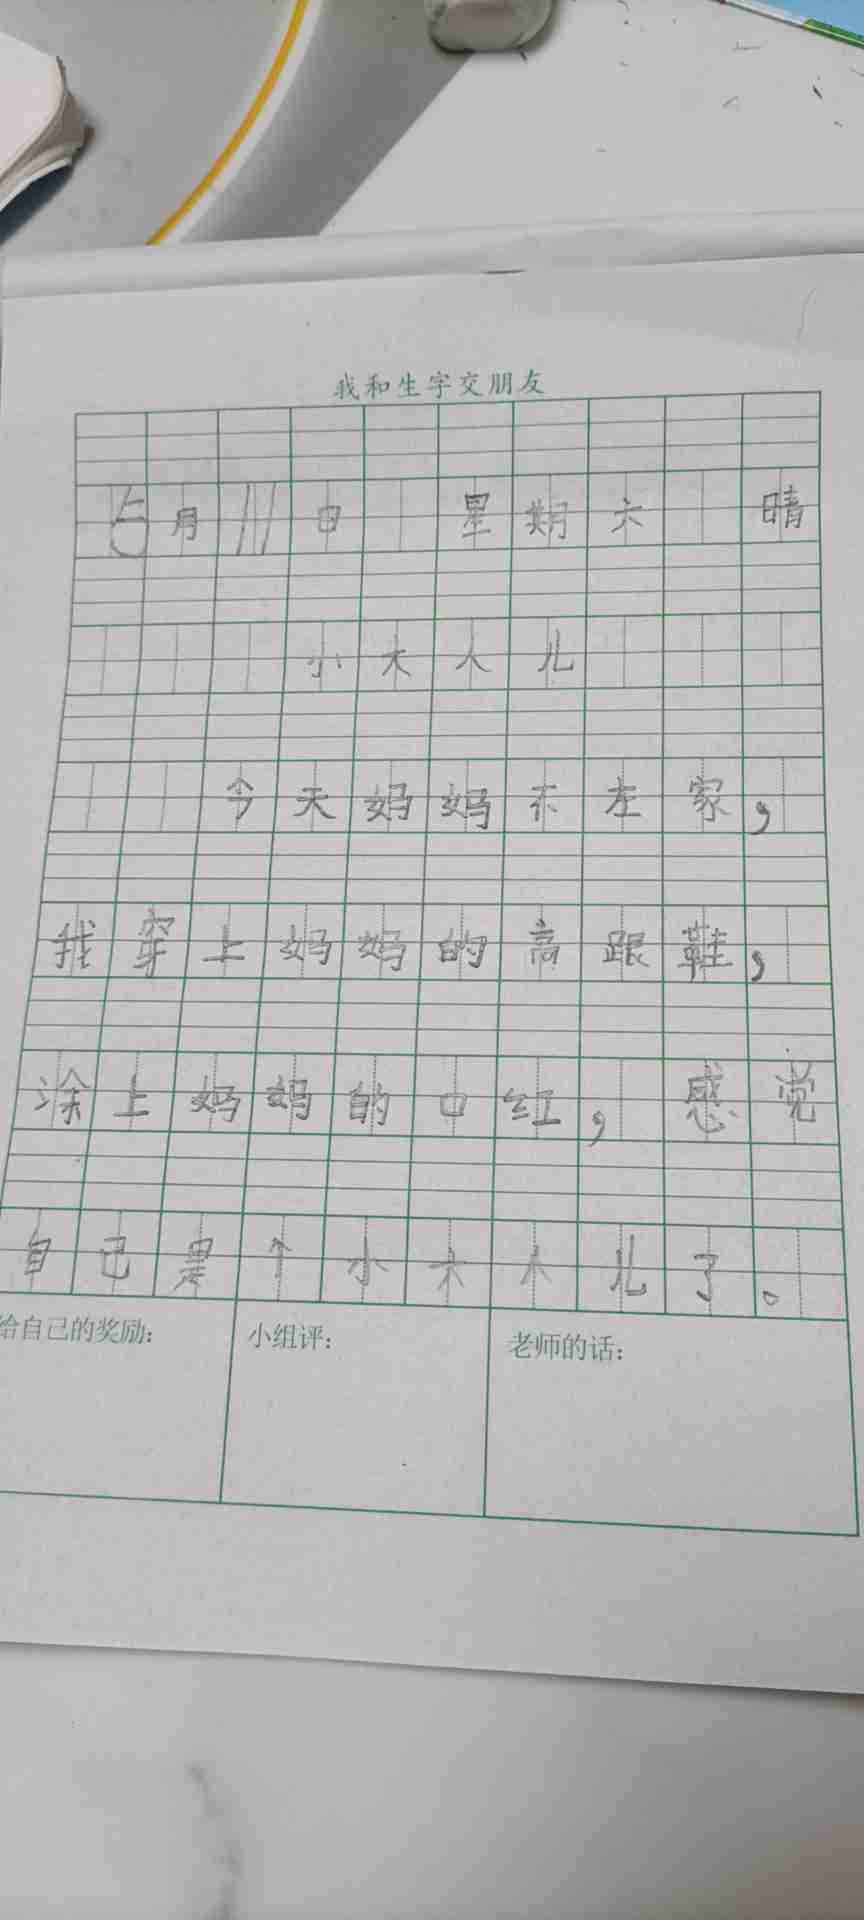 我和生字交朋友
5月11日 星期六 晴
小大人儿
今天妈妈不在家，
我穿上妈妈的高跟鞋，
涂上妈妈的口红，感觉
自己是个小大人儿了。
给自己的奖励： 小组评： 老师的话：